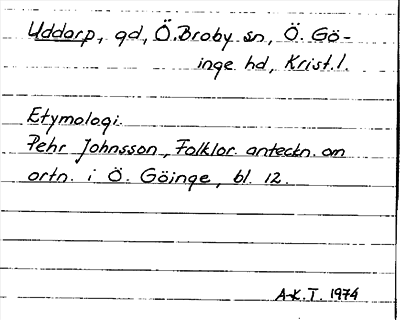 Uddarp, gd, Ö. Broby sn, Ö. Gö-
inge hd, Krist. l.
Etymologi.
Pehr Johnsson, Folklor. anteckn. om
ortn. i Ö. Göinge, bl. 12.
A-K.T. 1974